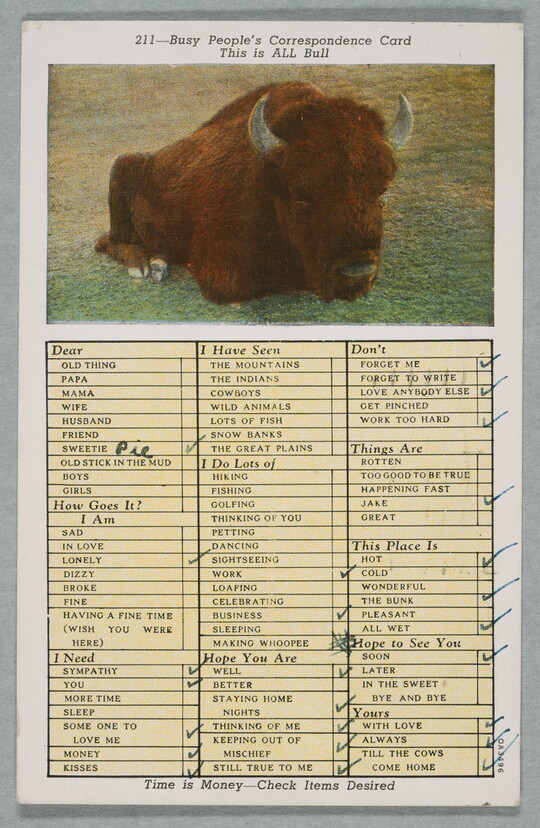 211—Busy People's Correspondence Card
This is ALL Bull
Dear
OLD THING
PAPA
MAMA
WIFE
HUSBAND
FRIEND
SWEETIE Pie
OLD STICK IN THE MUD
BOYS
GIRLS
How Goes It?
I Am
SAD
IN LOVE
LONELY
DIZZY
BROKE
FINE
HAVING A FINE TIME
(WISH YOU WERE
HERE)
I Need
SYMPATHY
YOU
MORE TIME
SLEEP
SOME ONE TO
LOVE ME
MONEY
KISSES
I Have Seen
THE MOUNTAINS
THE INDIANS
COWBOYS
WILD ANIMALS
LOTS OF FISH
SNOW BANKS
THE GREAT PLAINS
I Do Lots of
HIKING
FISHING
GOLFING
THINKING OF YOU
PETTING
DANCING
SIGHTSEEING
WORK
LOAFING
CELEBRATING
BUSINESS
SLEEPING
MAKING WHOOPEE
Hope You Are
WELL
BETTER
STAYING HOME
NIGHTS
THINKING OF ME
KEEPING OUT OF
MISCHIEF
STILL TRUE TO ME
Don't
FORGET ME
FORGET TO WRITE
LOVE ANYBODY ELSE
GET PINCHED
WORK TOO HARD
Things Are
ROTTEN
TOO GOOD TO BE TRUE
HAPPENING FAST
JAKE
GREAT
This Place Is
HOT
COLD
WONDERFUL
THE BUNK
PLEASANT
ALL WET
Hope to See You
SOON
LATER
IN THE SWEET
BYE AND BYE
Yours
WITH LOVE
ALWAYS
TILL THE COWS
COME HOME
OA3496
Time is Money—Check Items Desired